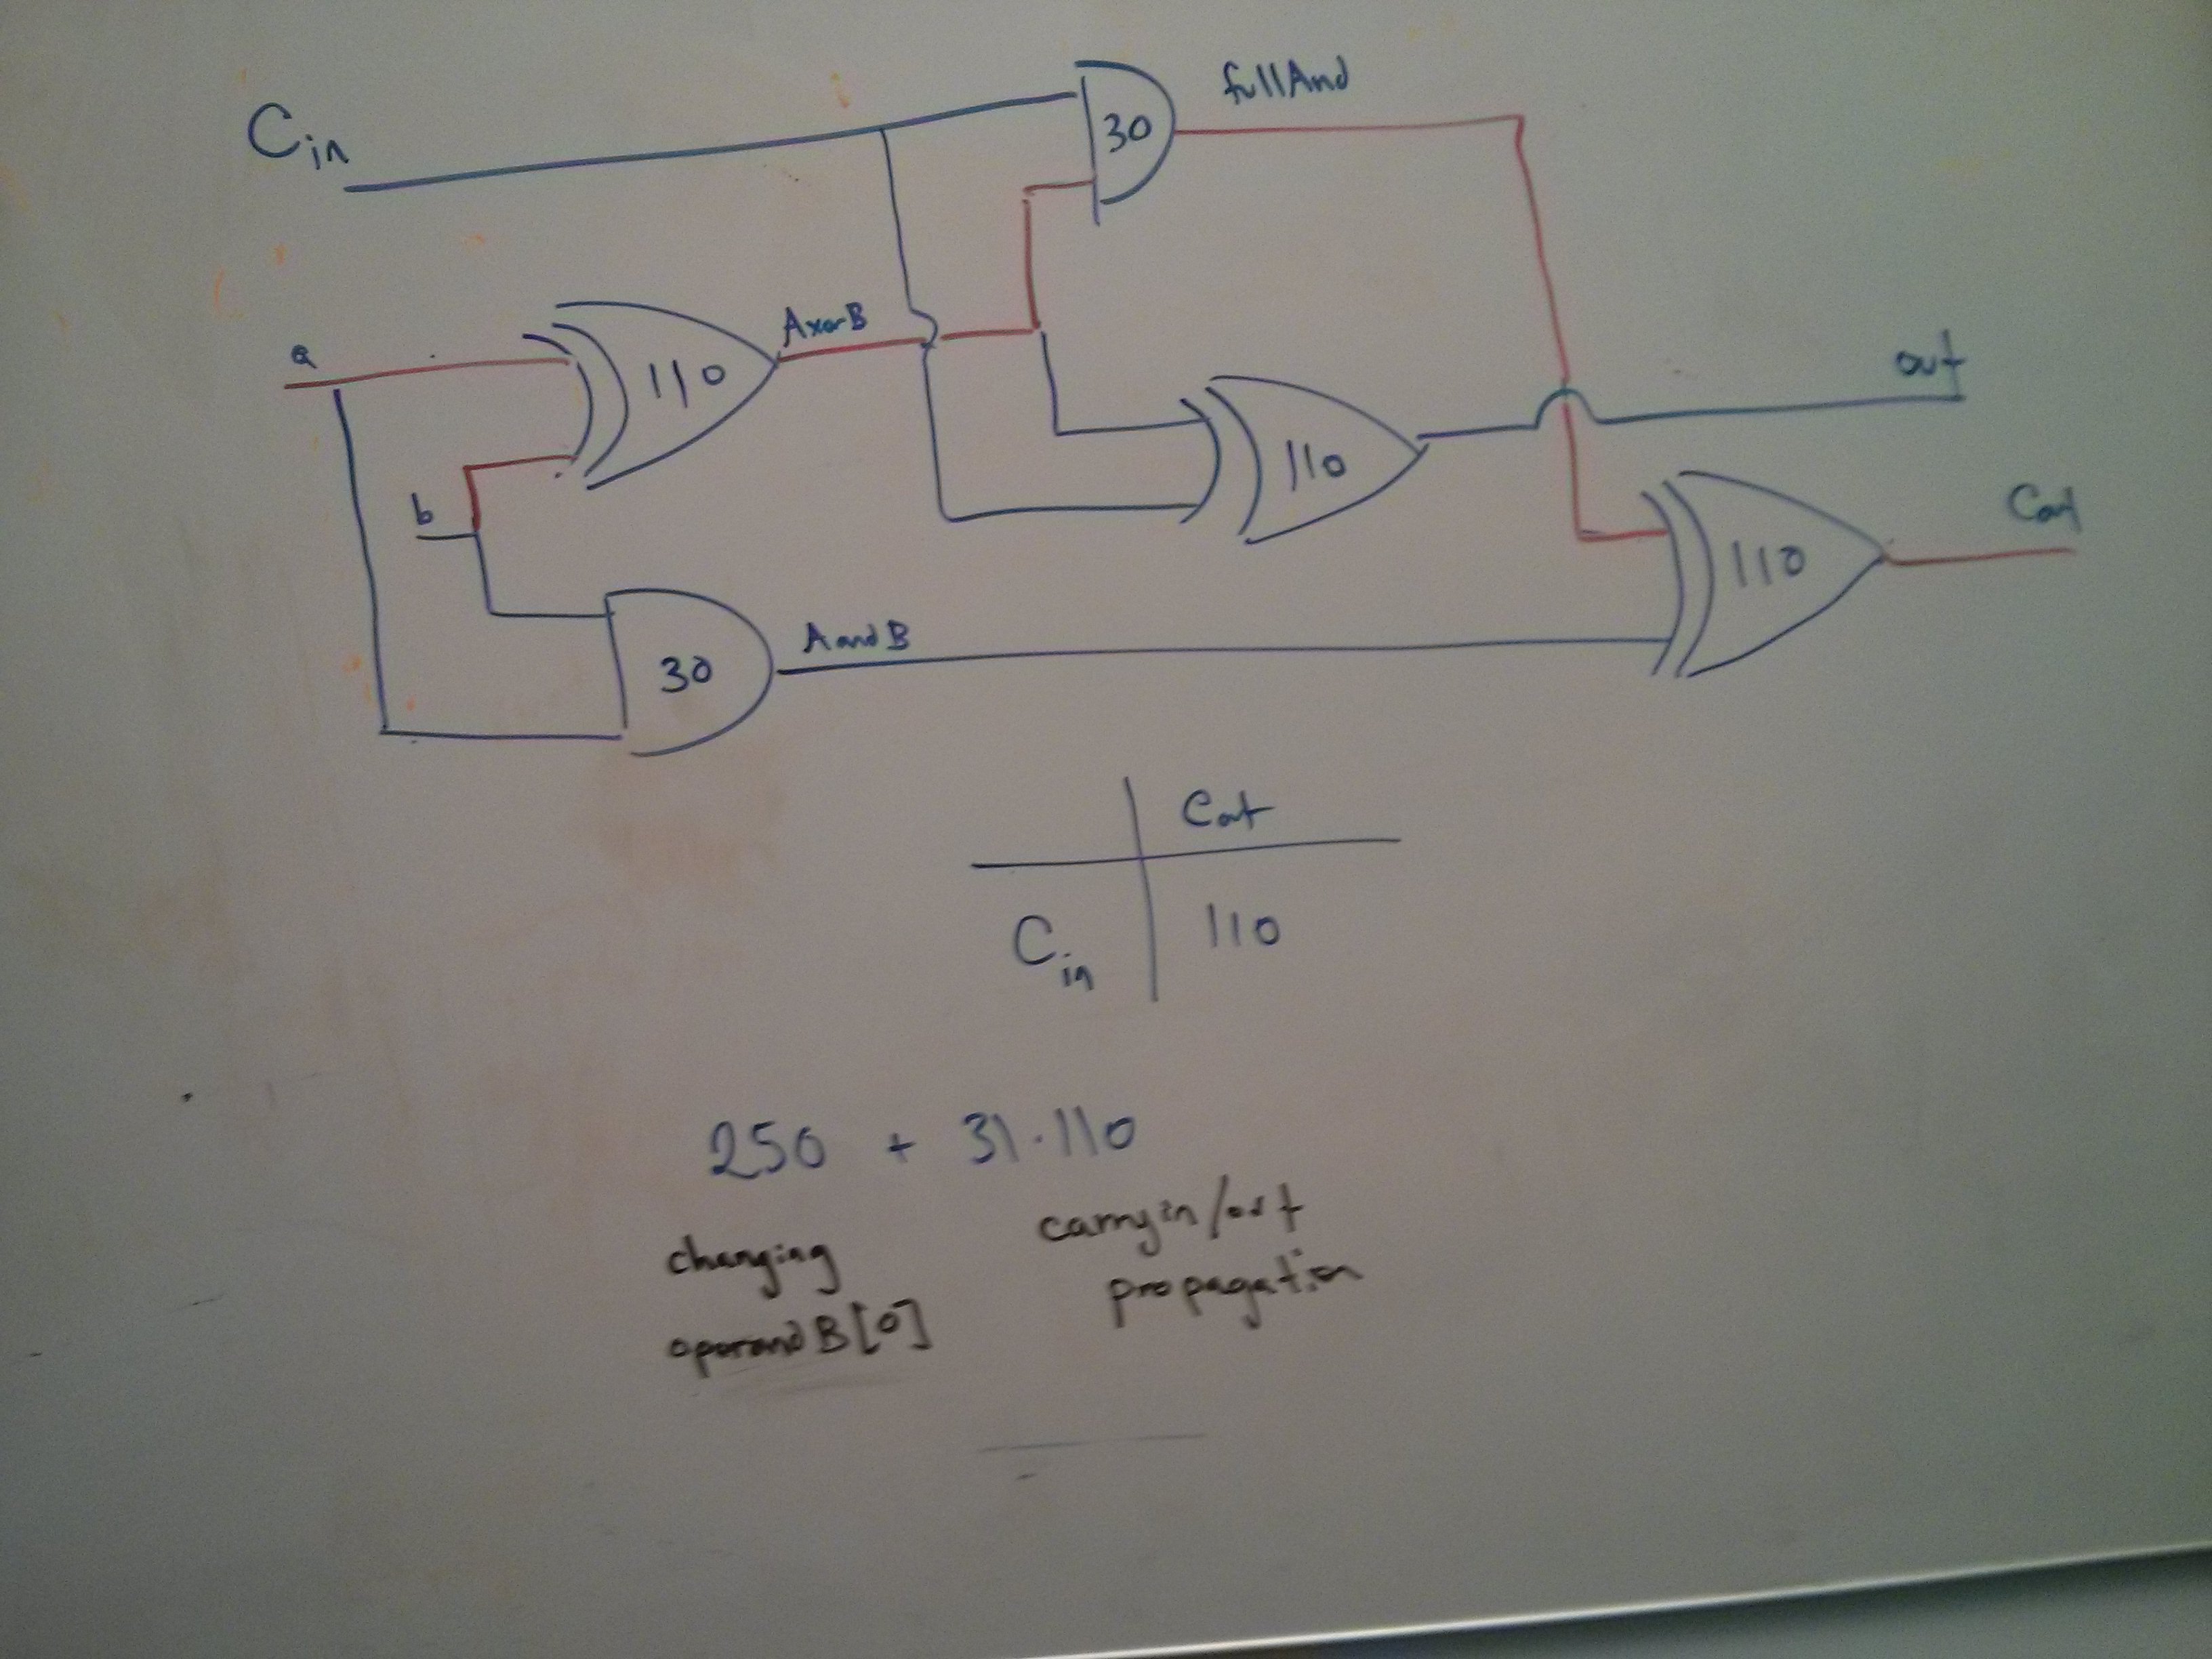 fullAnd
30
Cin
AxorB
a
110
out
b
110
Cout
110
AandB
30
Cout
Cin
110
250 + 31.110
changing
operandB[0]
carryin/out
propagation